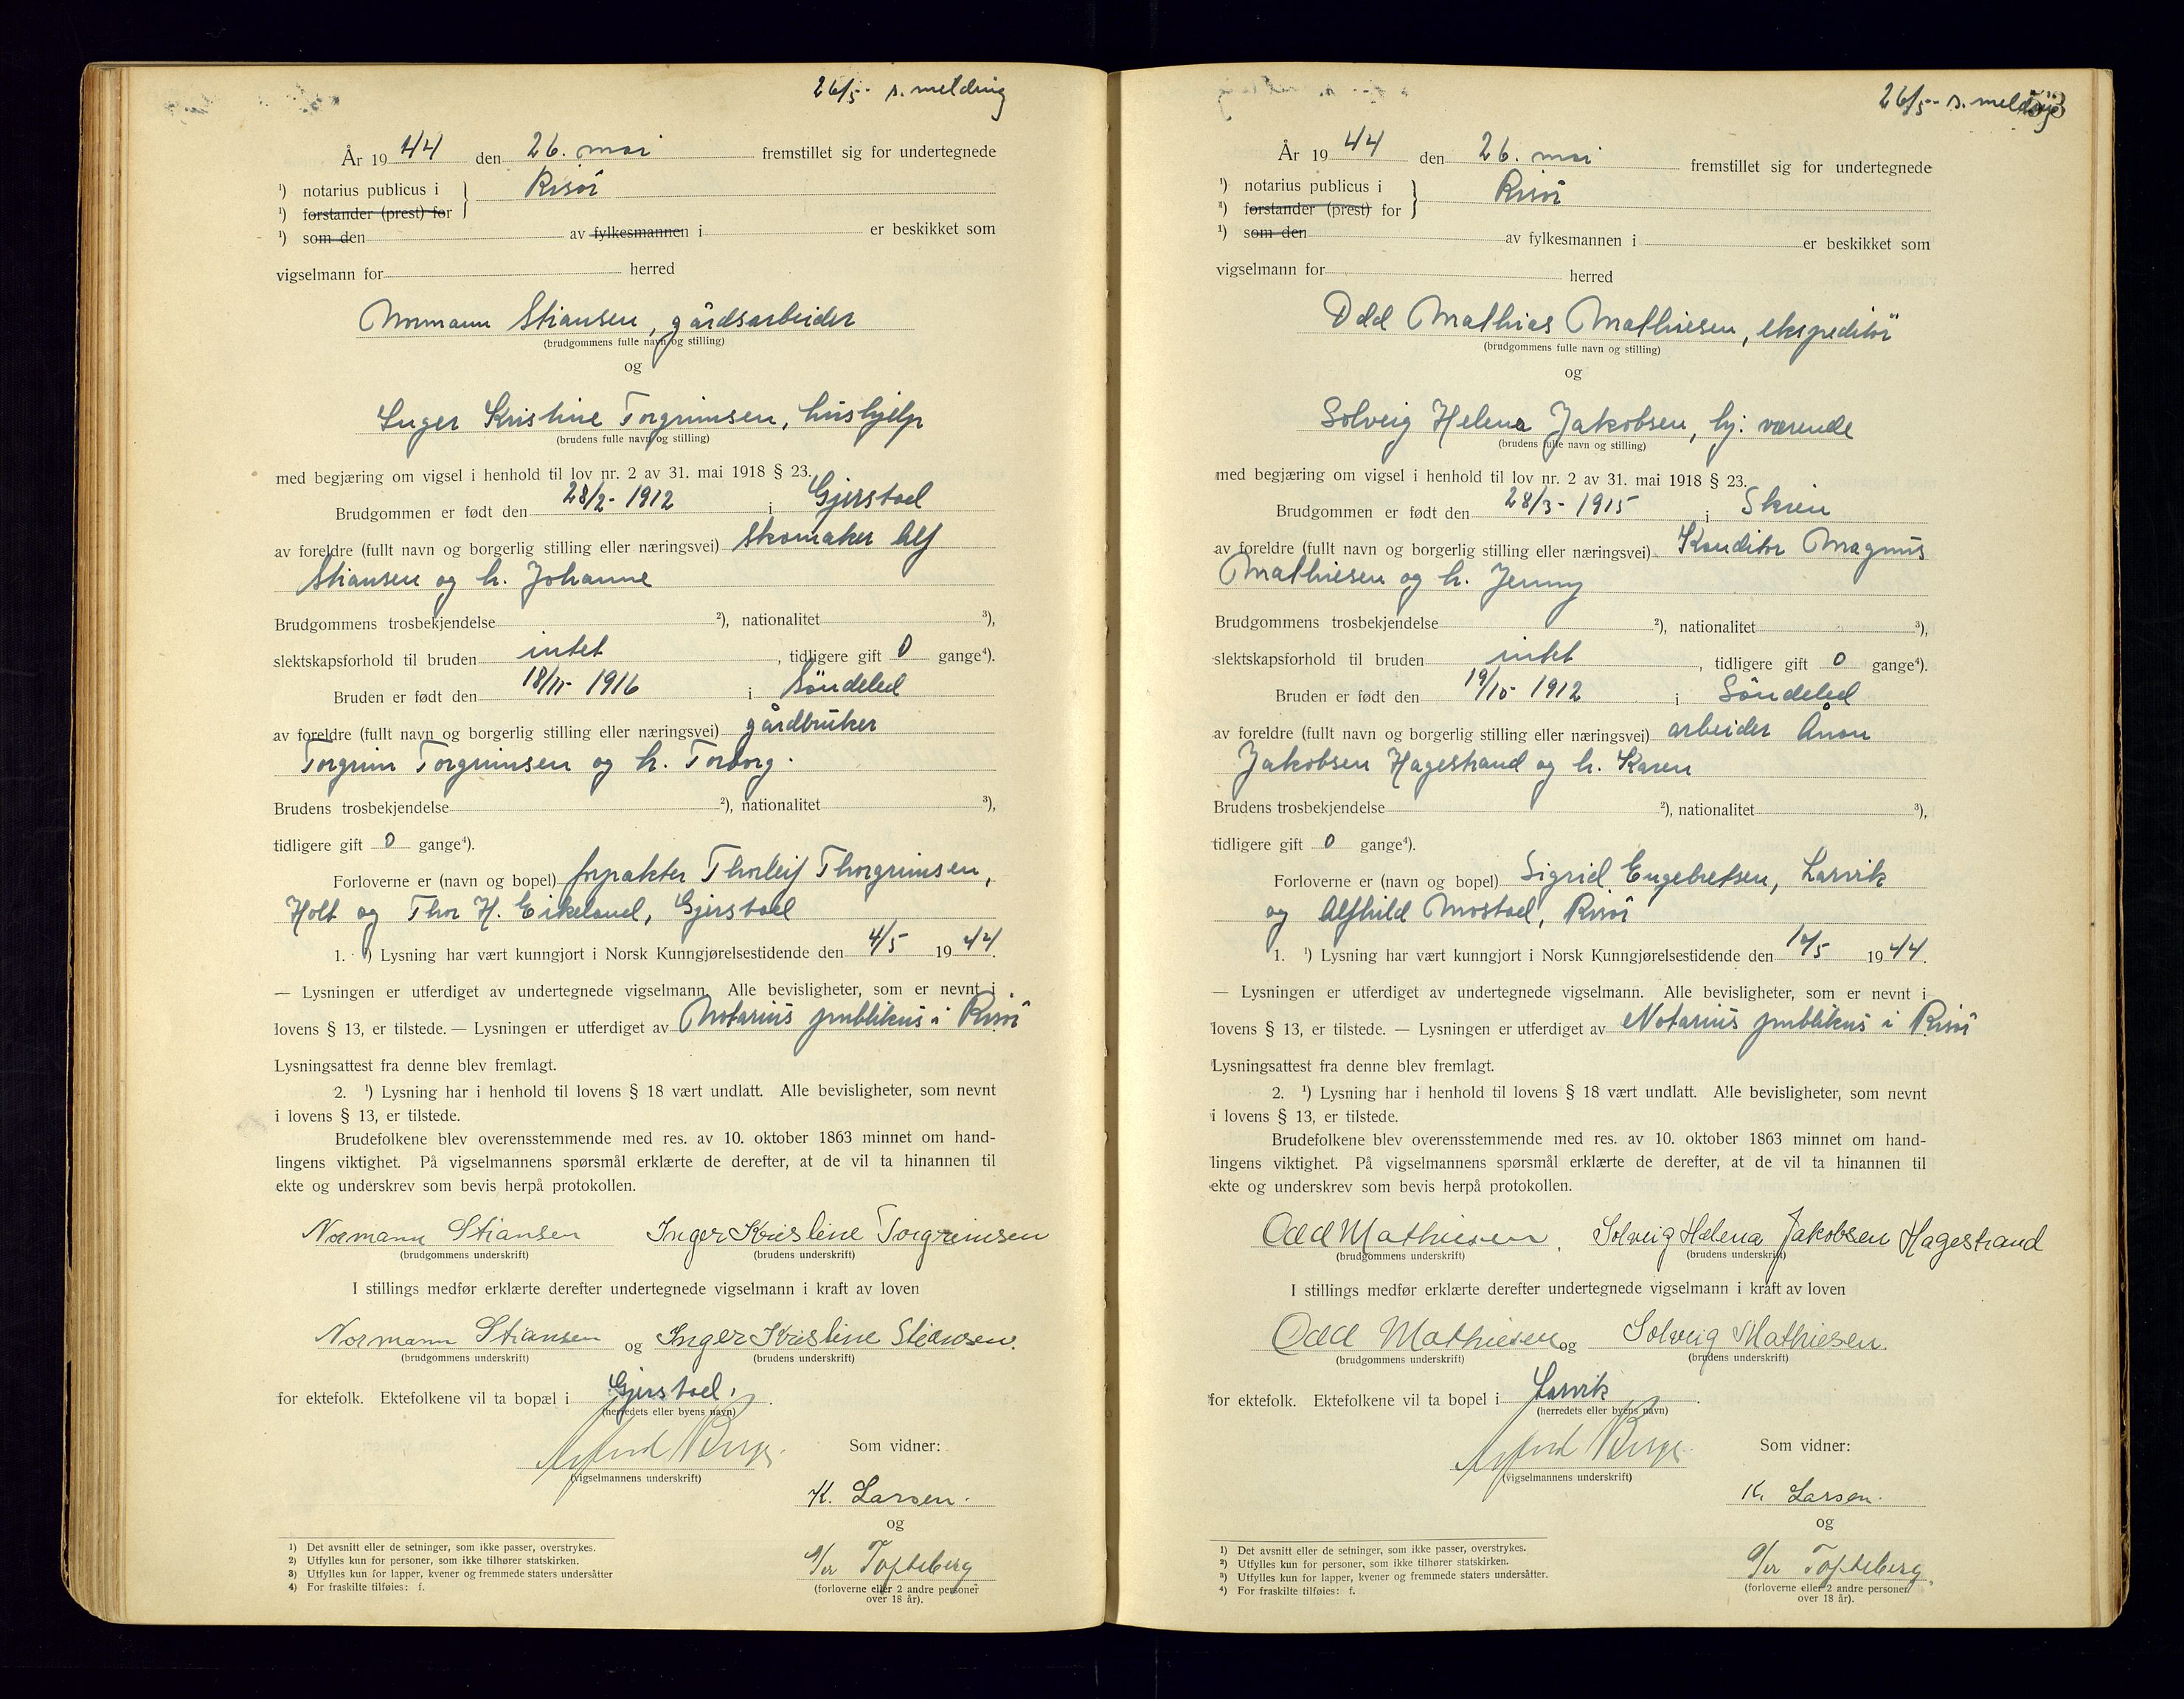 26/5 - s. melding
År 1944 den 26. mai fremstillet sig for undertegnede
¹) notarius publicus i } Risör
¹) forstander (prest) for
¹) som den av fylkesmannen i er beskikket som
vigselmann for herred
Normann Stiansen, gårdsarbeider
(brudgommens fulle navn og stilling)
og
Inger Kristine Torgrimsen, hushjelp
(brudens fulle navn og stilling)
med begjæring om vigsel i henhold til lov nr. 2 av 31. mai 1918 § 23.
Brudgommen er født den 28/2- 1912 i Gjerstad
av foreldre (fullt navn og borgerlig stilling eller næringsvei) skomaker Alf
Stiansen og h. Johanne
Brudgommens trosbekjendelse ²), nationalitet ³),
slektskapsforhold til bruden intet, tidligere gift 0 gange⁴).
Bruden er født den 18/11- 1916 i Söndeled
av foreldre (fullt navn og borgerlig stilling eller næringsvei) gårdbruker
Torgrim Torgrimsen og h. Torborg.
Brudens trosbekjendelse ²), nationalitet ³),
tidligere gift 0 gange⁴).
Forloverne er (navn og bopel) forpakter Thorleif Thorgrimsen,
Holt og Thor H. Eikeland, Gjerstad
1. ¹) Lysning har vært kunngjort i Norsk Kunngjørelsestidende den 4/5 1944.
— Lysningen er utferdiget av undertegnede vigselmann. Alle bevisligheter, som er nevnt i
lovens § 13, er tilstede. — Lysningen er utferdiget av Notarius publikus i Risör
Lysningsattest fra denne blev fremlagt.
2. ¹) Lysning har i henhold til lovens § 18 vært undlatt. Alle bevisligheter, som nevnt
i lovens § 13, er tilstede.
Brudefolkene blev overensstemmende med res. av 10. oktober 1863 minnet om hand-
lingens viktighet. På vigselmannens spørsmål erklærte de derefter, at de vil ta hinannen til
ekte og underskrev som bevis herpå protokollen.
Normann Stiansen Inger Kristine Torgrimsen
(brudgommens underskrift) (brudens underskrift)
I stillings medfør erklærte derefter undertegnede vigselmann i kraft av loven
Normann Stiansen og Inger Kristine Stiansen.
(brudgommens underskrift) (brudens underskrift)
for ektefolk. Ektefolkene vil ta bopæl i Gjerstad.
(herredets eller byens navn)
Berge
(vigselmannens underskrift)
Som vidner:
K. Larsen.
og
Tofteberg
(forloverne eller 2 andre personer
over 18 år).
1) Det avsnitt eller de setninger, som ikke passer, overstrykes.
2) Utfylles kun for personer, som ikke tilhører statskirken.
3) Utfylles kun for lapper, kvener og fremmede staters undersåtter
4) For fraskilte tilføies: f.
26/5 - s. melding
År 1944 den 26. mai fremstillet sig for undertegnede
¹) notarius publicus i } Risör
¹) forstander (prest) for
¹) som den av fylkesmannen i er beskikket som
vigselmann for herred
Odd Mathias Mathiesen, ekspeditör
(brudgommens fulle navn og stilling)
og
Solveig Helena Jakobsen, hj. værende
(brudens fulle navn og stilling)
med begjæring om vigsel i henhold til lov nr. 2 av 31. mai 1918 § 23.
Brudgommen er født den 28/3- 1915 i Skien
av foreldre (fullt navn og borgerlig stilling eller næringsvei) Konditor Magnus
Mathiesen og h. Jenny
Brudgommens trosbekjendelse ²), nationalitet ³),
slektskapsforhold til bruden intet, tidligere gift 0 gange⁴).
Bruden er født den 19/10- 1912 i Söndeled
av foreldre (fullt navn og borgerlig stilling eller næringsvei) arbeider Anon
Jakobsen Hagestrand og h. Karen
Brudens trosbekjendelse ²), nationalitet ³),
tidligere gift 0 gange⁴).
Forloverne er (navn og bopel) Sigrid Engebretsen, Larvik
og Alfhild Mostad, Risör
1. ¹) Lysning har vært kunngjort i Norsk Kunngjørelsestidende den 10/5 1944.
— Lysningen er utferdiget av undertegnede vigselmann. Alle bevisligheter, som er nevnt i
lovens § 13, er tilstede. — Lysningen er utferdiget av Notarius publikus i Risör
Lysningsattest fra denne blev fremlagt.
2. ¹) Lysning har i henhold til lovens § 18 vært undlatt. Alle bevisligheter, som nevnt
i lovens § 13, er tilstede.
Brudefolkene blev overensstemmende med res. av 10. oktober 1863 minnet om hand-
lingens viktighet. På vigselmannens spørsmål erklærte de derefter, at de vil ta hinannen til
ekte og underskrev som bevis herpå protokollen.
Odd Mathiesen. Solveig Helena Jakobsen Hagestrand
(brudgommens underskrift) (brudens underskrift)
I stillings medfør erklærte derefter undertegnede vigselmann i kraft av loven
Odd Mathiesen og Solveig Mathiesen.
(brudgommens underskrift) (brudens underskrift)
for ektefolk. Ektefolkene vil ta bopel i Larvik.
(herredets eller byens navn)
Berge
(vigselmannens underskrift)
Som vidner:
K. Larsen.
og
Tofteberg.
(forloverne eller 2 andre personer
over 18 år).
1) Det avsnitt eller de setninger, som ikke passer, overstrykes.
2) Utfylles kun for personer, som ikke tilhører statskirken.
3) Utfylles kun for lapper, kvener og fremmede staters undersåtter.
4) For fraskilte tilføies: f.